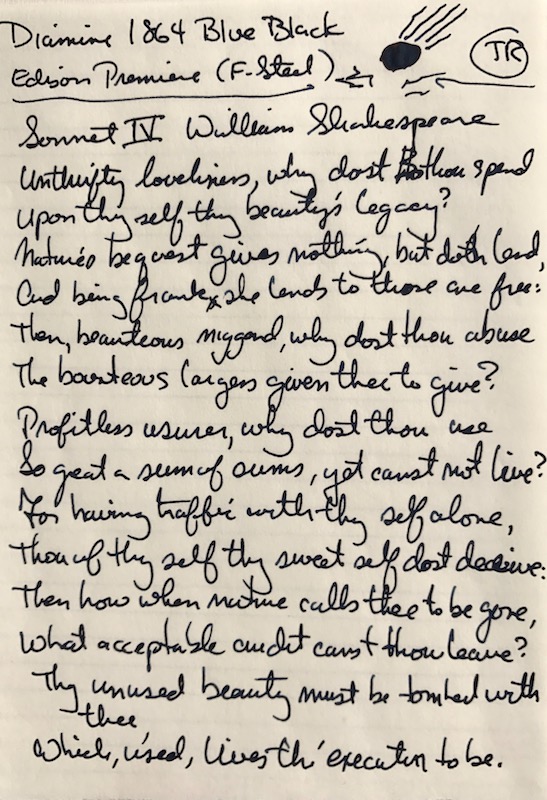 Diamine 1864 Blue Black
TR
Edison Premiere (F-Steel)
Sonnet IV William Shakespeare
Unthrifty loveliness, why dost thou spend
Upon thy self thy beauty's legacy?
Nature's bequest gives nothing, but doth lend,
And being frank, she lends to those are free:
Then, beauteous niggard, why dost thou abuse
The bounteous largess given thee to give?
Profitless usurer, why dost thou use
So great a sum of sums, yet canst not live?
For having traffic with thy self alone,
Thou of thy self thy sweet self dost deceive:
Then how when nature calls thee to be gone,
What acceptable audit canst thou leave?
Thy unused beauty must be tombed with
thee
Which, used, lives th' executor to be.